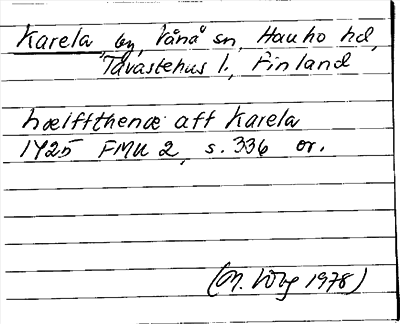 Karela, by, Vånå sn, Hauho hd,
Tavastehus l., Finland
hælffthenæ aff Karela
1425 FMU 2, s. 336 or.
(M. 1978)